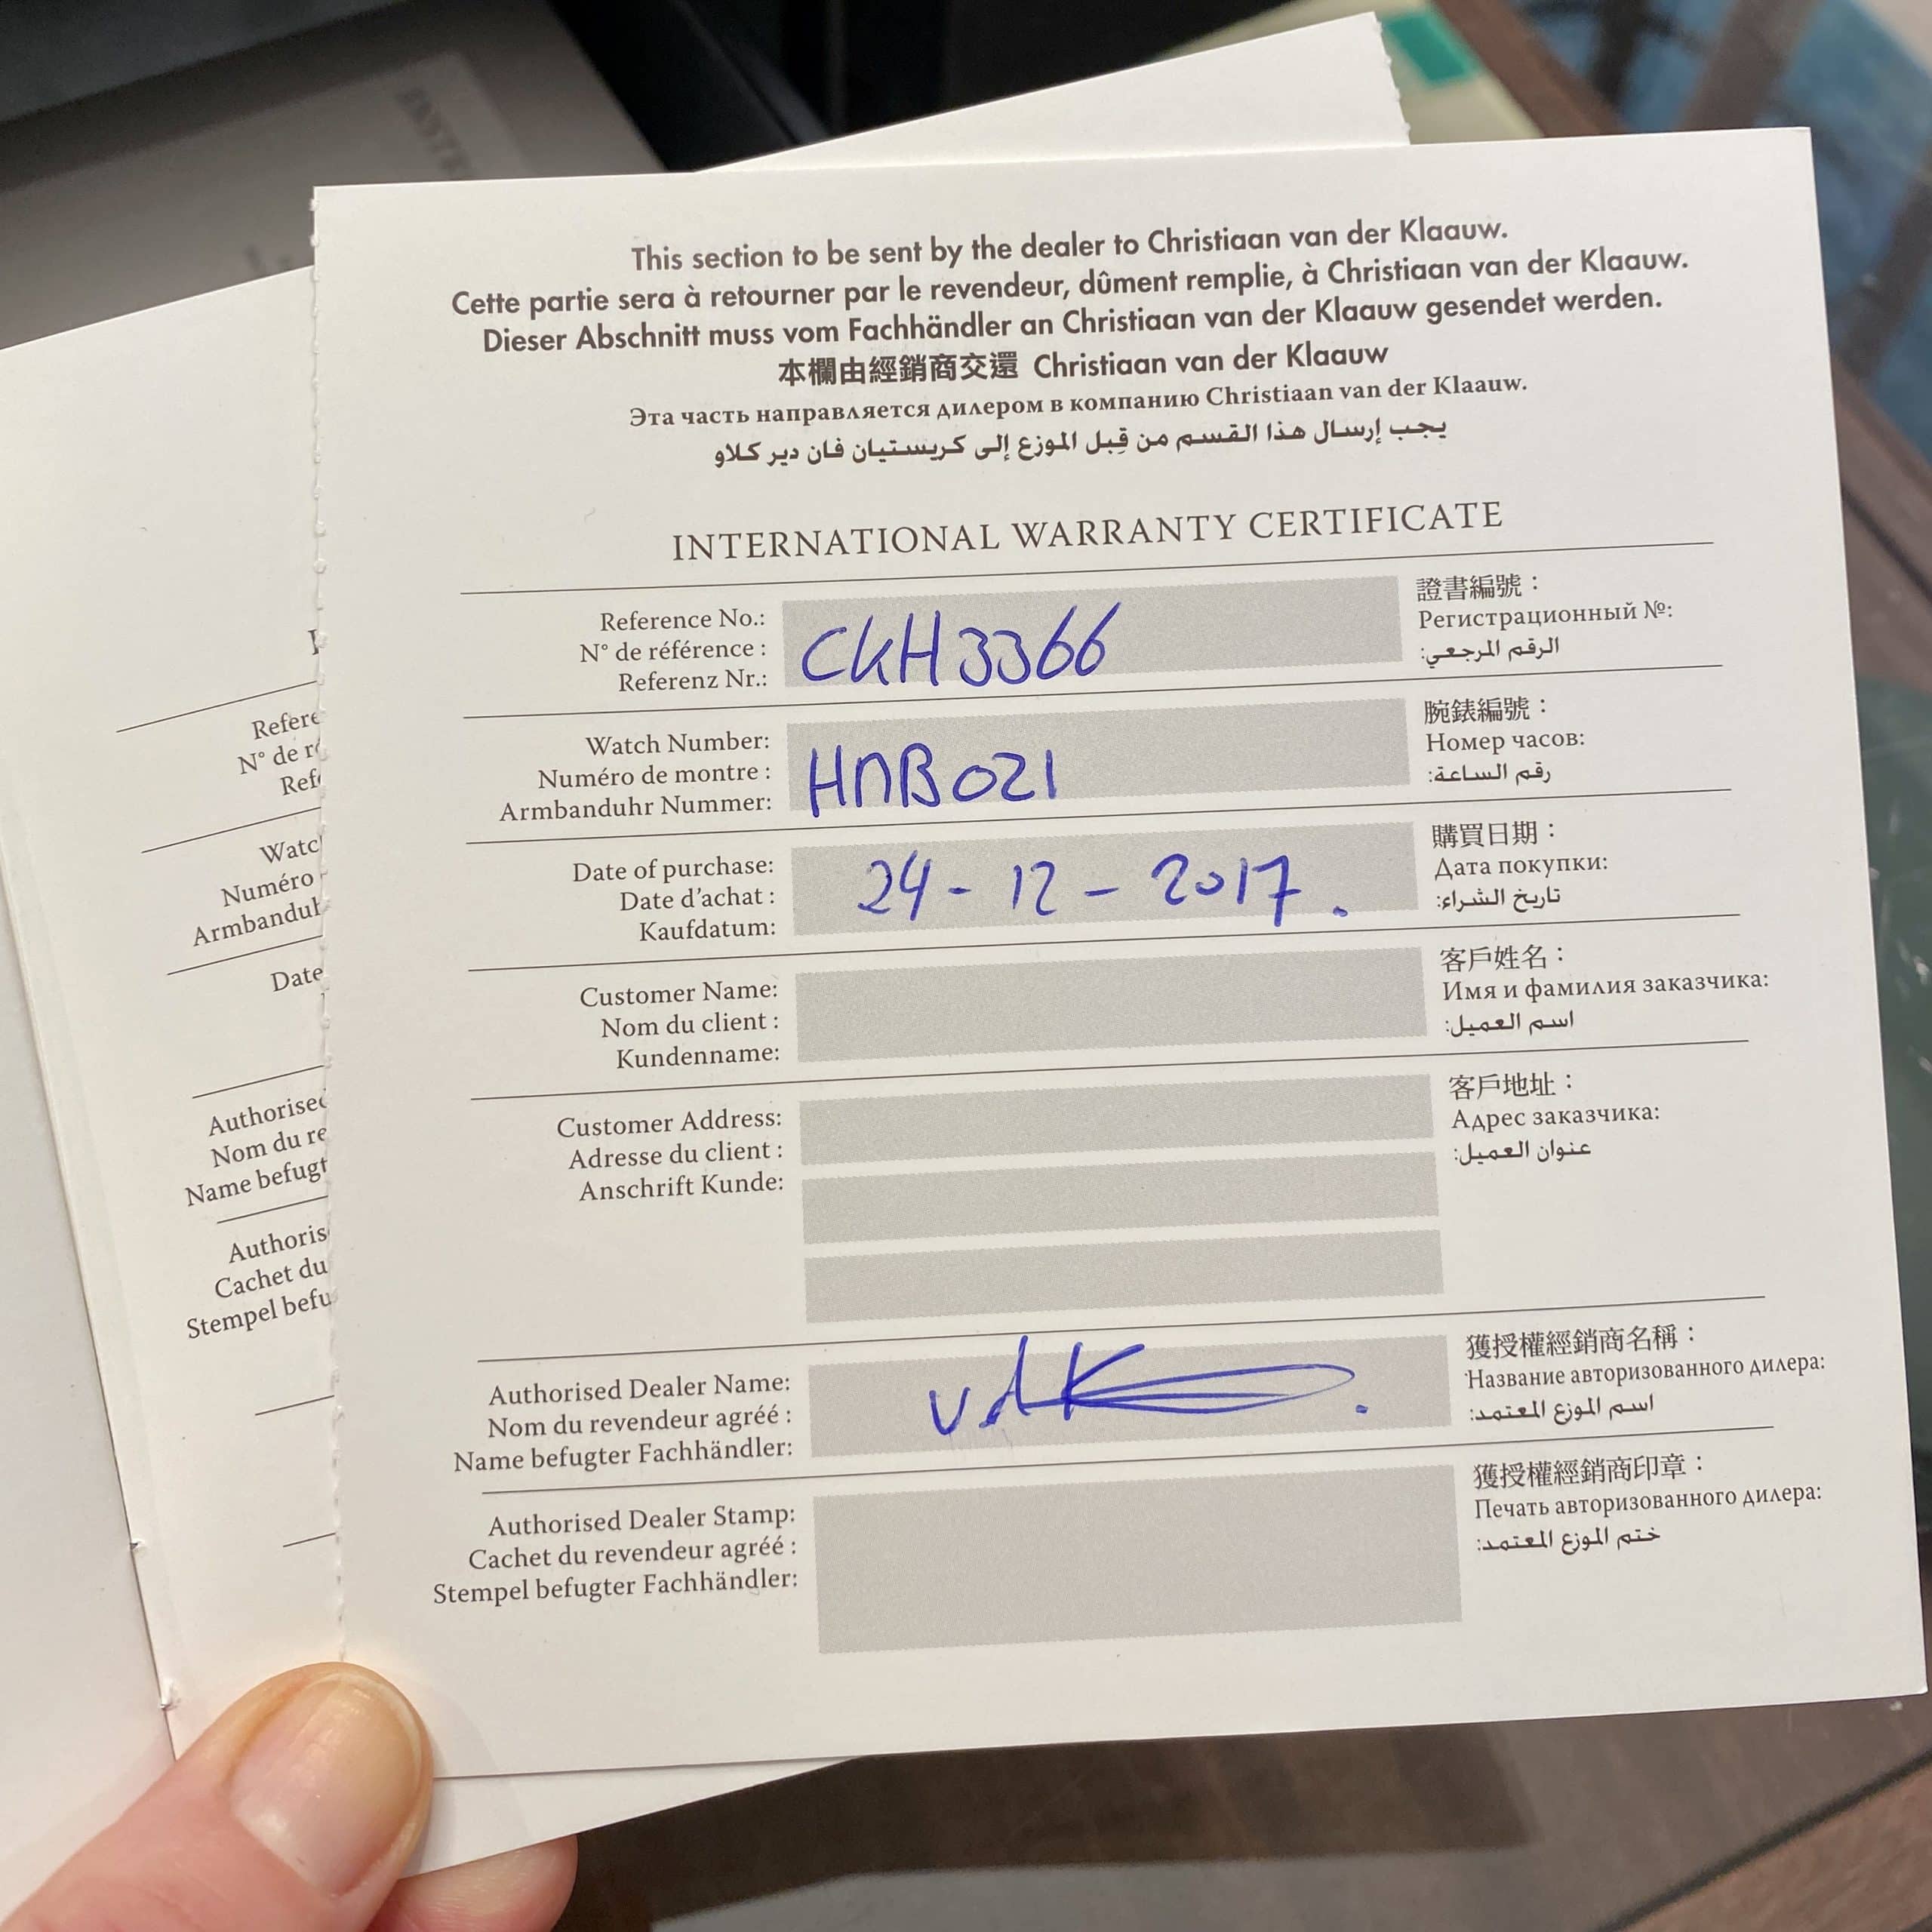 INSTR
This section to be sent by the dealer to Christiaan van der Klaauw.
Cette partie sera à retourner par le revendeur, dûment remplie, à Christiaan van der Klaauw.
Dieser Abschnitt muss vom Fachhändler an Christiaan van der Klaauw gesendet werden.
本欄由經銷商交還 Christiaan van der Klaauw
Эта часть направляется дилером в компанию Christiaan van der Klaauw.
يجب إرسال هذا القسم من قِبل الموزع إلى كريستيان فان دير كلاو
INTERNATIONAL WARRANTY CERTIFICATE
Reference No.:
N° de référence :
Referenz Nr.:
CKH3366
證書編號：
Регистрационный №:
الرقم المرجعي:
Watch Number:
Numéro de montre :
Armbanduhr Nummer:
HNB021
腕錶編號：
Номер часов:
رقم الساعة:
Date of purchase:
Date d'achat :
Kaufdatum:
24-12-2017.
購買日期：
Дата покупки:
تاريخ الشراء:
Customer Name:
Nom du client :
Kundenname:
客戶姓名：
Имя и фамилия заказчика:
اسم العميل:
Customer Address:
Adresse du client :
Anschrift Kunde:
客戶地址：
Адрес заказчика:
عنوان العميل:
Authorised Dealer Name:
Nom du revendeur agréé :
Name befugter Fachhändler:
vdK
獲授權經銷商名稱：
Название авторизованного дилера:
اسم الموزع المعتمد:
Authorised Dealer Stamp:
Cachet du revendeur agréé :
Stempel befugter Fachhändler:
獲授權經銷商印章：
Печать авторизованного дилера:
ختم الموزع المعتمد:
Refere
N° de ré
Refe
Watc
Numéro
Armbanduh
Date
Authorised
Nom du re
Name befugt
Authoris
Cachet du
Stempel befu